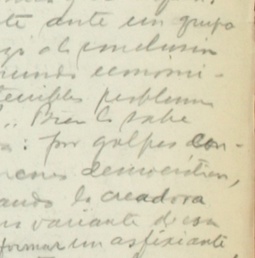 te ante un grupo
a la conclusión
mundo económi-
terribles problemas
Bien lo sabe
: por golpes con-
democráticos,
ando la creadora
variante de esa
formar un asfixiante